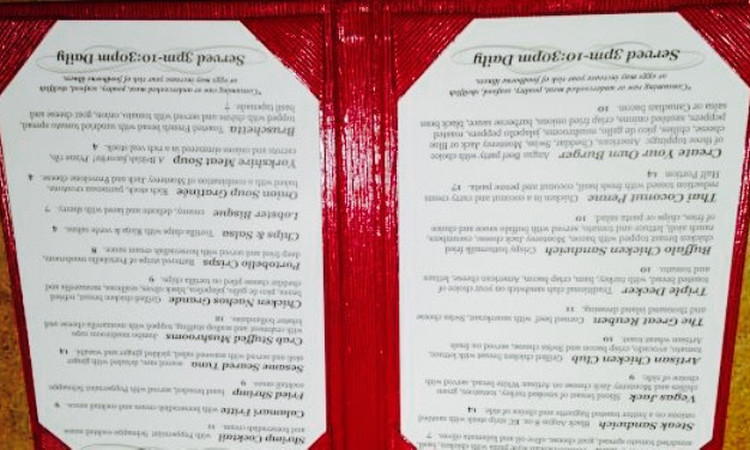 sundried tomato spread, goat cheese, olive oil and kalamata olives. 7
Steak Sandwich Black Angus 8 oz. KC strip steak with sautéed
onions on a butter toasted baguette and choice of side. 14
Vegas Jack Sliced breast of smoked turkey, tomatoes, green
chilies and Monterey Jack cheese on Artisan Wheat bread, served with
choice of side. 9
Artisan Chicken Club Grilled chicken breast with lettuce,
tomato, avocado, crisp bacon and Swiss cheese, served on thick
Artisan wheat toast. 10
The Great Reuben Corned beef with sauerkraut, Swiss cheese
and thousand island dressing. 11
Triple Decker Traditional club sandwich on your choice of
toasted bread, with turkey, ham, crisp bacon, American cheese, lettuce
and tomato. 10
Buffalo Chicken Sandwich Crispy buttermilk fried
chicken breast topped with bacon, Monterey Jack cheese, cucumbers,
ranch aioli, lettuce and tomato, served with buffalo sauce and choice
of fries, chips or pasta salad. 10
Thai Coconut Penne Chicken in a coconut and curry cream
reduction tossed with fresh basil, coconut and penne pasta. 17
Half Portion 14
Create Your Own Burger Angus Beef patty with choice
of three toppings: American, Cheddar, Swiss, Monterey Jack or Blue
cheese, chilies, pico de gallo, mushrooms, jalapeño peppers, roasted
peppers, sautéed onions, crisp fried onions, barbecue sauce, black bean
salsa or Canadian bacon. 10
*Consuming raw or undercooked meat, poultry, seafood, shellfish
or eggs may increase your risk of foodborne illness.
Served 3pm-10:30pm Daily
Shrimp Cocktail with Peppermint Schnapps cocktail sauce
and horseradish cream. 11
Calamari Fritti with horseradish cream and cocktail sauce. 9
Fried Shrimp hand breaded, served with Peppermint Schnapps
cocktail sauce. 9
Sesame Seared Tuna seared rare, dusted with ginger
and served with seaweed salad, pickled ginger and wasabi. 14
Crab Stuffed Mushrooms Jumbo mushroom caps
with crabmeat and scallop stuffing, topped with mozzarella cheese and
lobster hollandaise. 10
Chicken Nachos Grande Grilled chicken breast, refried
beans, pico de gallo, jalapeños, black olives, scallions, mozzarella and
cheddar cheese piled on tortilla chips. 9
Portobello Crisps Battered strips of Portobello mushroom,
deep fried and served with horseradish cream sauce. 8
Chips & Salsa Tortilla chips with Rioja & verde salsas. 4
Lobster Bisque creamy, delicate and laced with sherry. 7
Onion Soup Gratinée Rich stock, parmesan croutons,
baked with a combination of Monterey Jack and Provolone cheese. 4
Yorkshire Meat Soup A British favorite! Prime rib,
carrots and onions simmered in a rich veal stock. 4
Bruschetta Toasted French bread with sundried tomato spread,
topped with chicken and served with tomato, onion, goat cheese and
basil tapenade. 7
*Consuming raw or undercooked meat, poultry, seafood, shellfish
or eggs may increase your risk of foodborne illness.
Served 3pm-10:30pm Daily